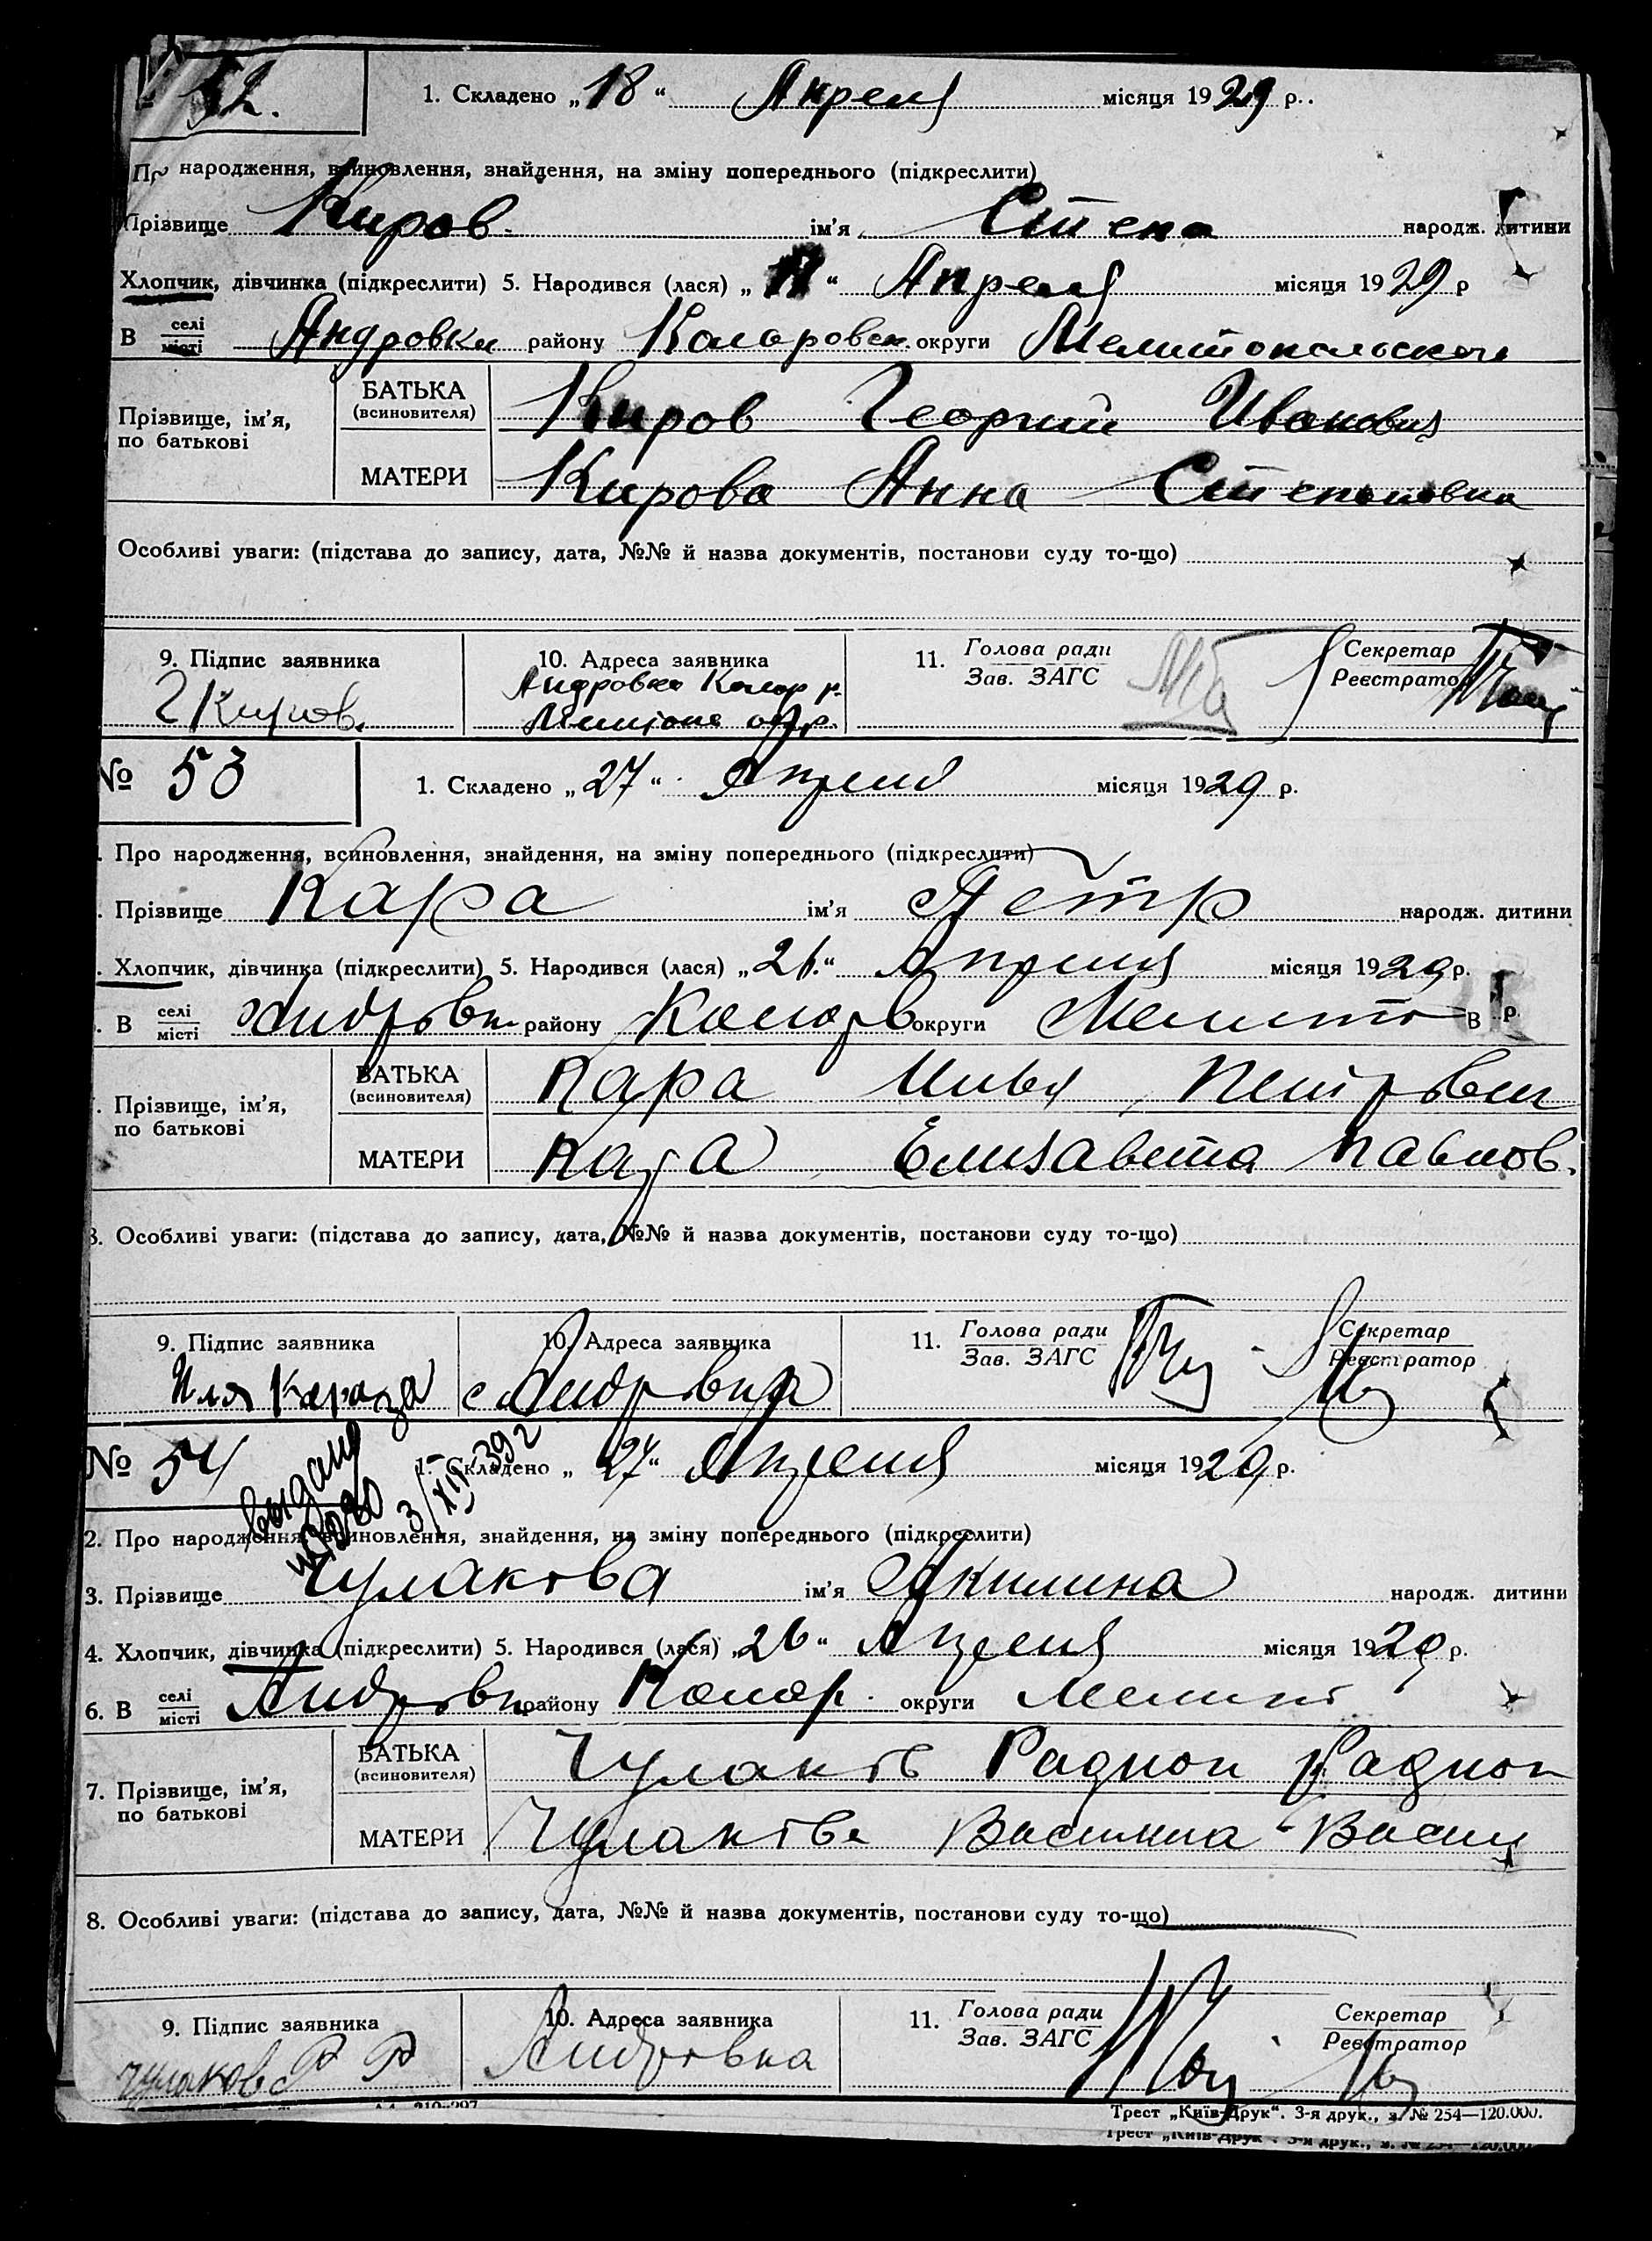 52.
1. Складено „18“ Апреля місяця 1929 р.
народження, всиновлення, знайдення, на зміну попереднього (підкреслити)
Прізвище Киров ім'я Степа народж. дитини
Хлопчик, дівчинка (підкреслити) 5. Народився (лася) „ “ Апреля місяця 1929 р
В селі місті Андровки району Коларовск. округи Мелитопольского
Прізвище, ім'я, по батькові
БАТЬКА (всиновителя) Киров Георгий Иванович
МАТЕРИ Кирова Анна Степановна
Особливі уваги: (підстава до запису, дата, №№ й назва документів, постанови суду то-що)
9. Підпис заявника 10. Адреса заявника 11. Голова ради Зав. ЗАГС Секретар Реєстратор
Г Киров. Андровка Колар р.
Мелитоп окр.
№ 53
1. Складено „27“ Апреля місяця 1929 р.
Про народження, всиновлення, знайдення, на зміну попереднього (підкреслити)
Прізвище Кара ім'я Петр народж. дитини
Хлопчик, дівчинка (підкреслити) 5. Народився (лася) „26.“ Апреля місяця 1929 р.
В селі місті Андровк району Колар округи Мелито В р.
Прізвище, ім'я, по батькові
БАТЬКА (всиновителя) Кара Илья Петрович
МАТЕРИ Кара Елизавета Павлов.
8. Особливі уваги: (підстава до запису, дата, №№ й назва документів, постанови суду то-що)
9. Підпис заявника 10. Адреса заявника 11. Голова ради Зав. ЗАГС Секретар Реєстратор
Иля с Андровка
№ 54
выдано
3/XII-39 г
1. Складено „27“ Апреля місяця 1929 р.
2. Про народження, всиновлення, знайдення, на зміну попереднього (підкреслити)
3. Прізвище Чулакова ім'я Акилина народж. дитини
4. Хлопчик, дівчинка (підкреслити) 5. Народився (лася) „26“ Апреля місяця 1929 р.
6. В селі місті Андровк району Колар. округи Мелит
7. Прізвище, ім'я, по батькові
БАТЬКА (всиновителя) Чулаков Радион Радион
МАТЕРИ Чулакова Василина Васил
8. Особливі уваги: (підстава до запису, дата, №№ й назва документів, постанови суду то-що)
9. Підпис заявника 10. Адреса заявника 11. Голова ради Зав. ЗАГС Секретар Реєстратор
Чулаков Р Р Андровка
Трест „Київ-Друк“. 3-я друк., з. № 254—120.000.